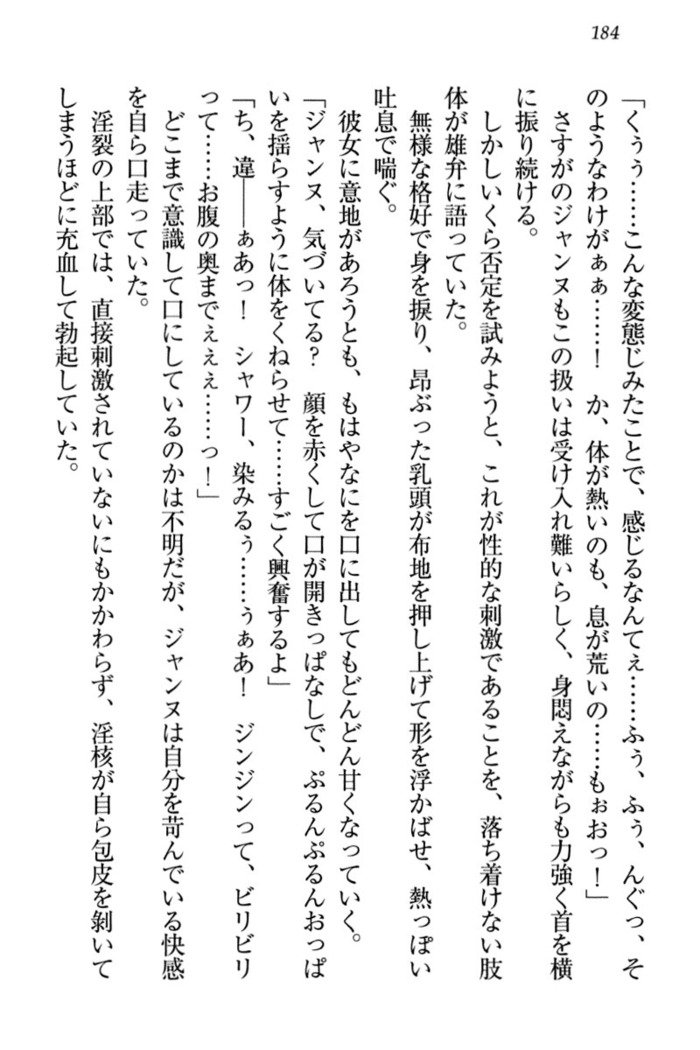 184
「くぅぅ……こんな変態じみたことで、感じるなんてぇ……ふぅ、ふぅ、んぐっ、そ
のようなわけがぁぁ……！　か、体が熱いのも、息が荒いの……もぉおっ！」
さすがのジャンヌもこの扱いは受け入れ難いらしく、身悶えながらも力強く首を横
に振り続ける。
しかしいくら否定を試みようと、これが性的な刺激であることを、落ち着けない肢
体が雄弁に語っていた。
無様な格好で身を捩り、昂ぶった乳頭が布地を押し上げて形を浮かばせ、熱っぽい
吐息で喘ぐ。
彼女に意地があろうとも、もはやなにを口に出してもどんどん甘くなっていく。
「ジャンヌ、気づいてる？　顔を赤くして口が開きっぱなしで、ぷるんぷるんおっぱ
いを揺らすように体をくねらせて……すごく興奮するよ」
「ち、違――ぁあっ！　シャワー、染みるぅ……ぅぁあ！　ジンジンって、ビリビリ
って……お腹の奥までぇぇぇ……っ！」
どこまで意識して口にしているのかは不明だが、ジャンヌは自分を苛んでいる快感
を自ら口走っていた。
淫裂の上部では、直接刺激されていないにもかかわらず、淫核が自ら包皮を剝いて
しまうほどに充血して勃起していた。